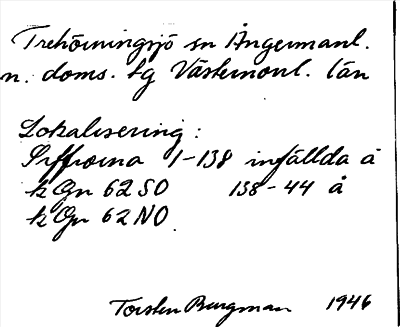 Trehörningsjö sn Ångermanl.
n. doms. tg Västernorrl. län
Lokalisering:
Siffrorna 1-138 infällda å
k Gn 62 SO 138-44 å
k Gn 62 NO.
Torsten Burgman 1946